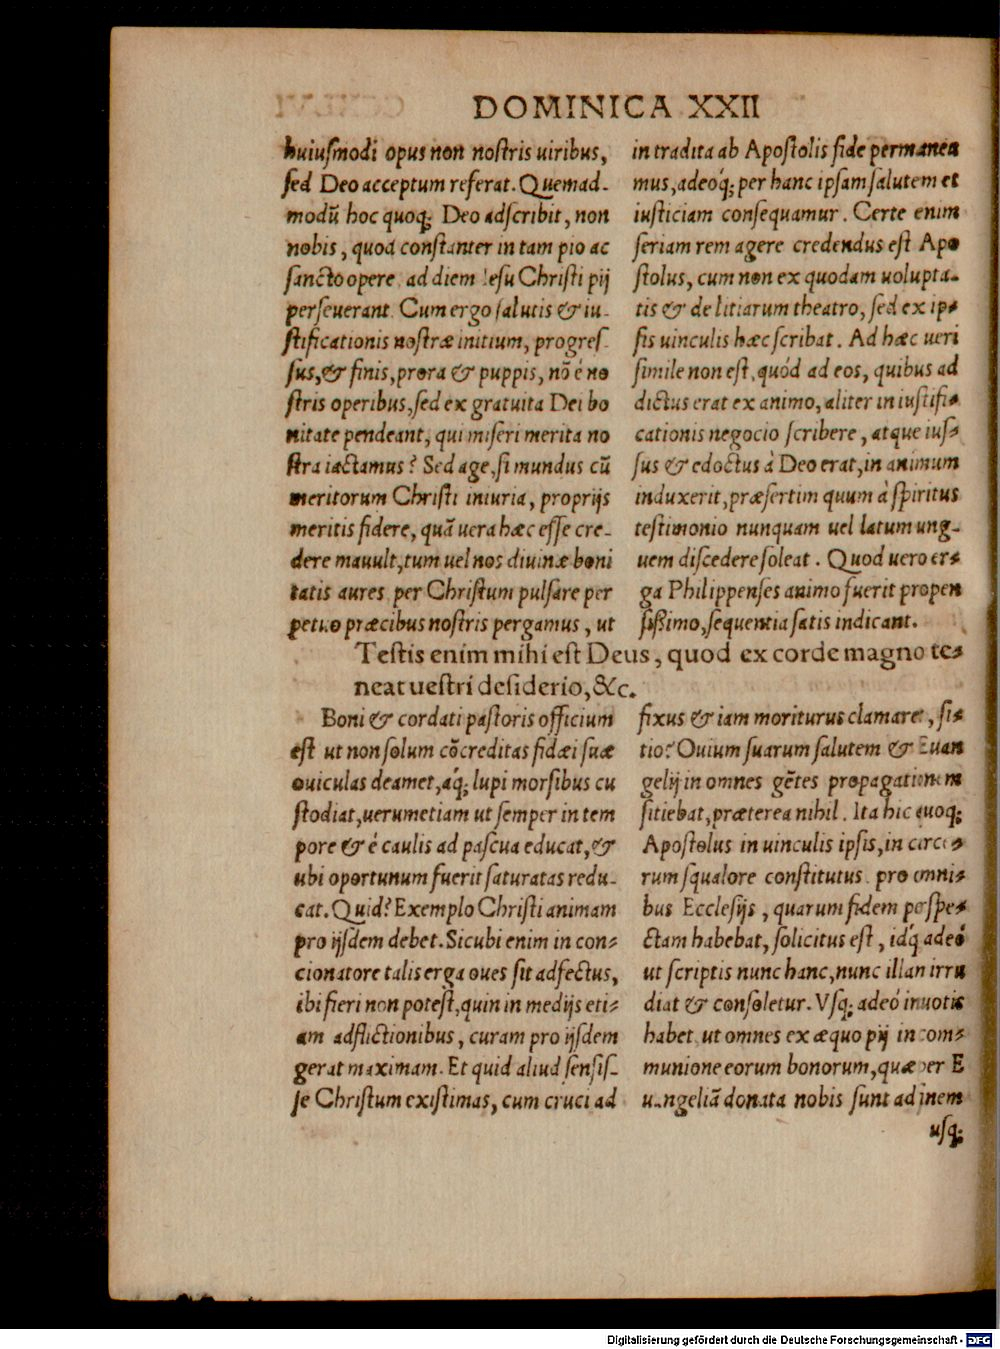 DOMINICA XXII
huiuſmodi opus non noſtris uiribus,
ſed Deo acceptum referat. Quemad-
modũ hoc quoq; Deo adſcribit, non
nobis, quod conſtanter in tam pio ac
ſancto opere ad diem Ieſu Chriſti pij
perſeuerant. Cum ergo ſalutis & iu-
ſtificationis noſtræ initium, progreſ-
ſus, & finis, prora & puppis, nõ è no
ſtris operibus, ſed ex gratuita Dei bo
nitate pendeant, qui miſeri merita no
ſtra iactamus? Sed age, ſi mundus cũ
meritorum Chriſti iniuria, proprijs
meritis fidere, quã uera hæc eſſe cre-
dere mauult, tum uel nos diuinæ boni
tatis aures per Chriſtum pulſare per
petuo præcibus noſtris pergamus, ut
in tradita ab Apoſtolis fide permanea
mus, adeoq́; per hanc ipſam ſalutem et
iuſticiam conſequamur. Certe enim
ſeriam rem agere credendus eſt Apo
ſtolus, cum non ex quodam uolupta-
tis & delitiarum theatro, ſed ex ip-
ſis uinculis hæc ſcribat. Ad hæc ueri
ſimile non eſt, quód ad eos, quibus ad
dictus erat ex animo, aliter in iuſtifi-
cationis negocio ſcribere, atque iuſ-
ſus & edoctus à Deo erat, in animum
induxerit, præſertim quum à ſpiritus
teſtimonio nunquam uel latum ung-
uem diſcedere ſoleat. Quod uero er-
ga Philippenſes animo fuerit propen
ſiſſimo, ſequentia ſatis indicant.
Teſtis enim mihi eſt Deus, quod ex corde magno te-
neat ueſtri deſiderio, &c.
Boni & cordati paſtoris officium
eſt ut non ſolum cõcreditas fidæi ſuæ
ouiculas deamet, aq́; lupi morſibus cu
ſtodiat, uerumetiam ut ſemper in tem
pore & è caulis ad paſcua educat, &
ubi oportunum fuerit ſaturatas redu-
cat. Quid? Exemplo Chriſti animam
pro ijſdem debet. Sicubi enim in con-
cionatore talis erga oues ſit adfectus,
ibi fieri non poteſt, quin in medijs eti-
am adflictionibus, curam pro ijſdem
gerat maximam. Et quid aliud ſenſiſ-
ſe Chriſtum exiſtimas, cum cruci ad
fixus & iam moriturus clamaret, ſi-
tio? Ouium ſuarum ſalutem & Euan
gelij in omnes gẽtes propagationem
ſitiebat, præterea nihil. Ita hic quoq;
Apoſtolus in uinculis ipſis, in carce-
rum ſqualore conſtitutus pro omni-
bus Eccleſijs, quarum fidem perſpe-
ctam habebat, ſolicitus eſt, idq́ adeó
ut ſcriptis nunc hanc, nunc illam irru
diat & conſoletur. Vſq; adeó in uotis
habet ut omnes ex æquo pij in com-
munione eorum bonorum, quæ per E
uangeliũ donata nobis ſunt ad finem
uſq;
Digitalisierung gefördert durch die Deutsche Forschungsgemeinschaft - DFG